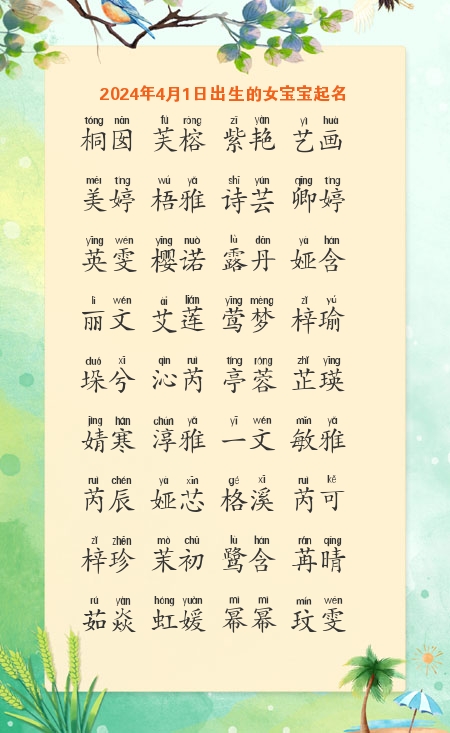 2024年4月1日出生的女宝宝起名
tóng nān fú róng zǐ yàn yì huà
桐囡 芙榕 紫艳 艺画
měi tíng wú yǎ shī yún qīng tíng
美婷 梧雅 诗芸 卿婷
yīng wén yīng nuò lù dān yà hán
英雯 樱诺 露丹 娅含
lì wén ài lián yīng mèng zǐ yú
丽文 艾莲 莺梦 梓瑜
duǒ xī qìn ruì tíng róng zhǐ yīng
垛兮 沁芮 亭蓉 芷瑛
jìng hán chún yǎ yī wén mǐn yǎ
婧寒 淳雅 一文 敏雅
ruì chén yà xīn gé xī ruì kě
芮辰 娅芯 格溪 芮可
zǐ zhēn mò chū lù hán rǎn qíng
梓珍 茉初 鹭含 苒晴
rú yàn hóng yuàn mì mì mín wén
茹焱 虹媛 幂幂 玟雯